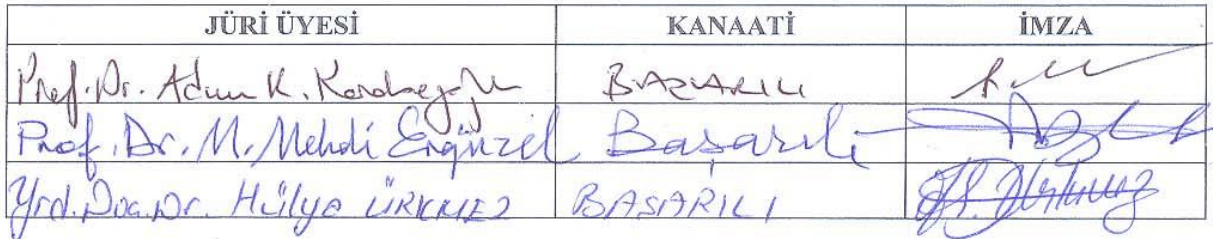 JÜRİ ÜYESİ KANAATİ İMZA
Prof. Dr. Adem K. BAŞARILI
Prof. Dr. M. Mehdi Ergüzel Başarılı
Yrd. Doç. Dr. Hülya ÜRKMEZ BAŞARILI